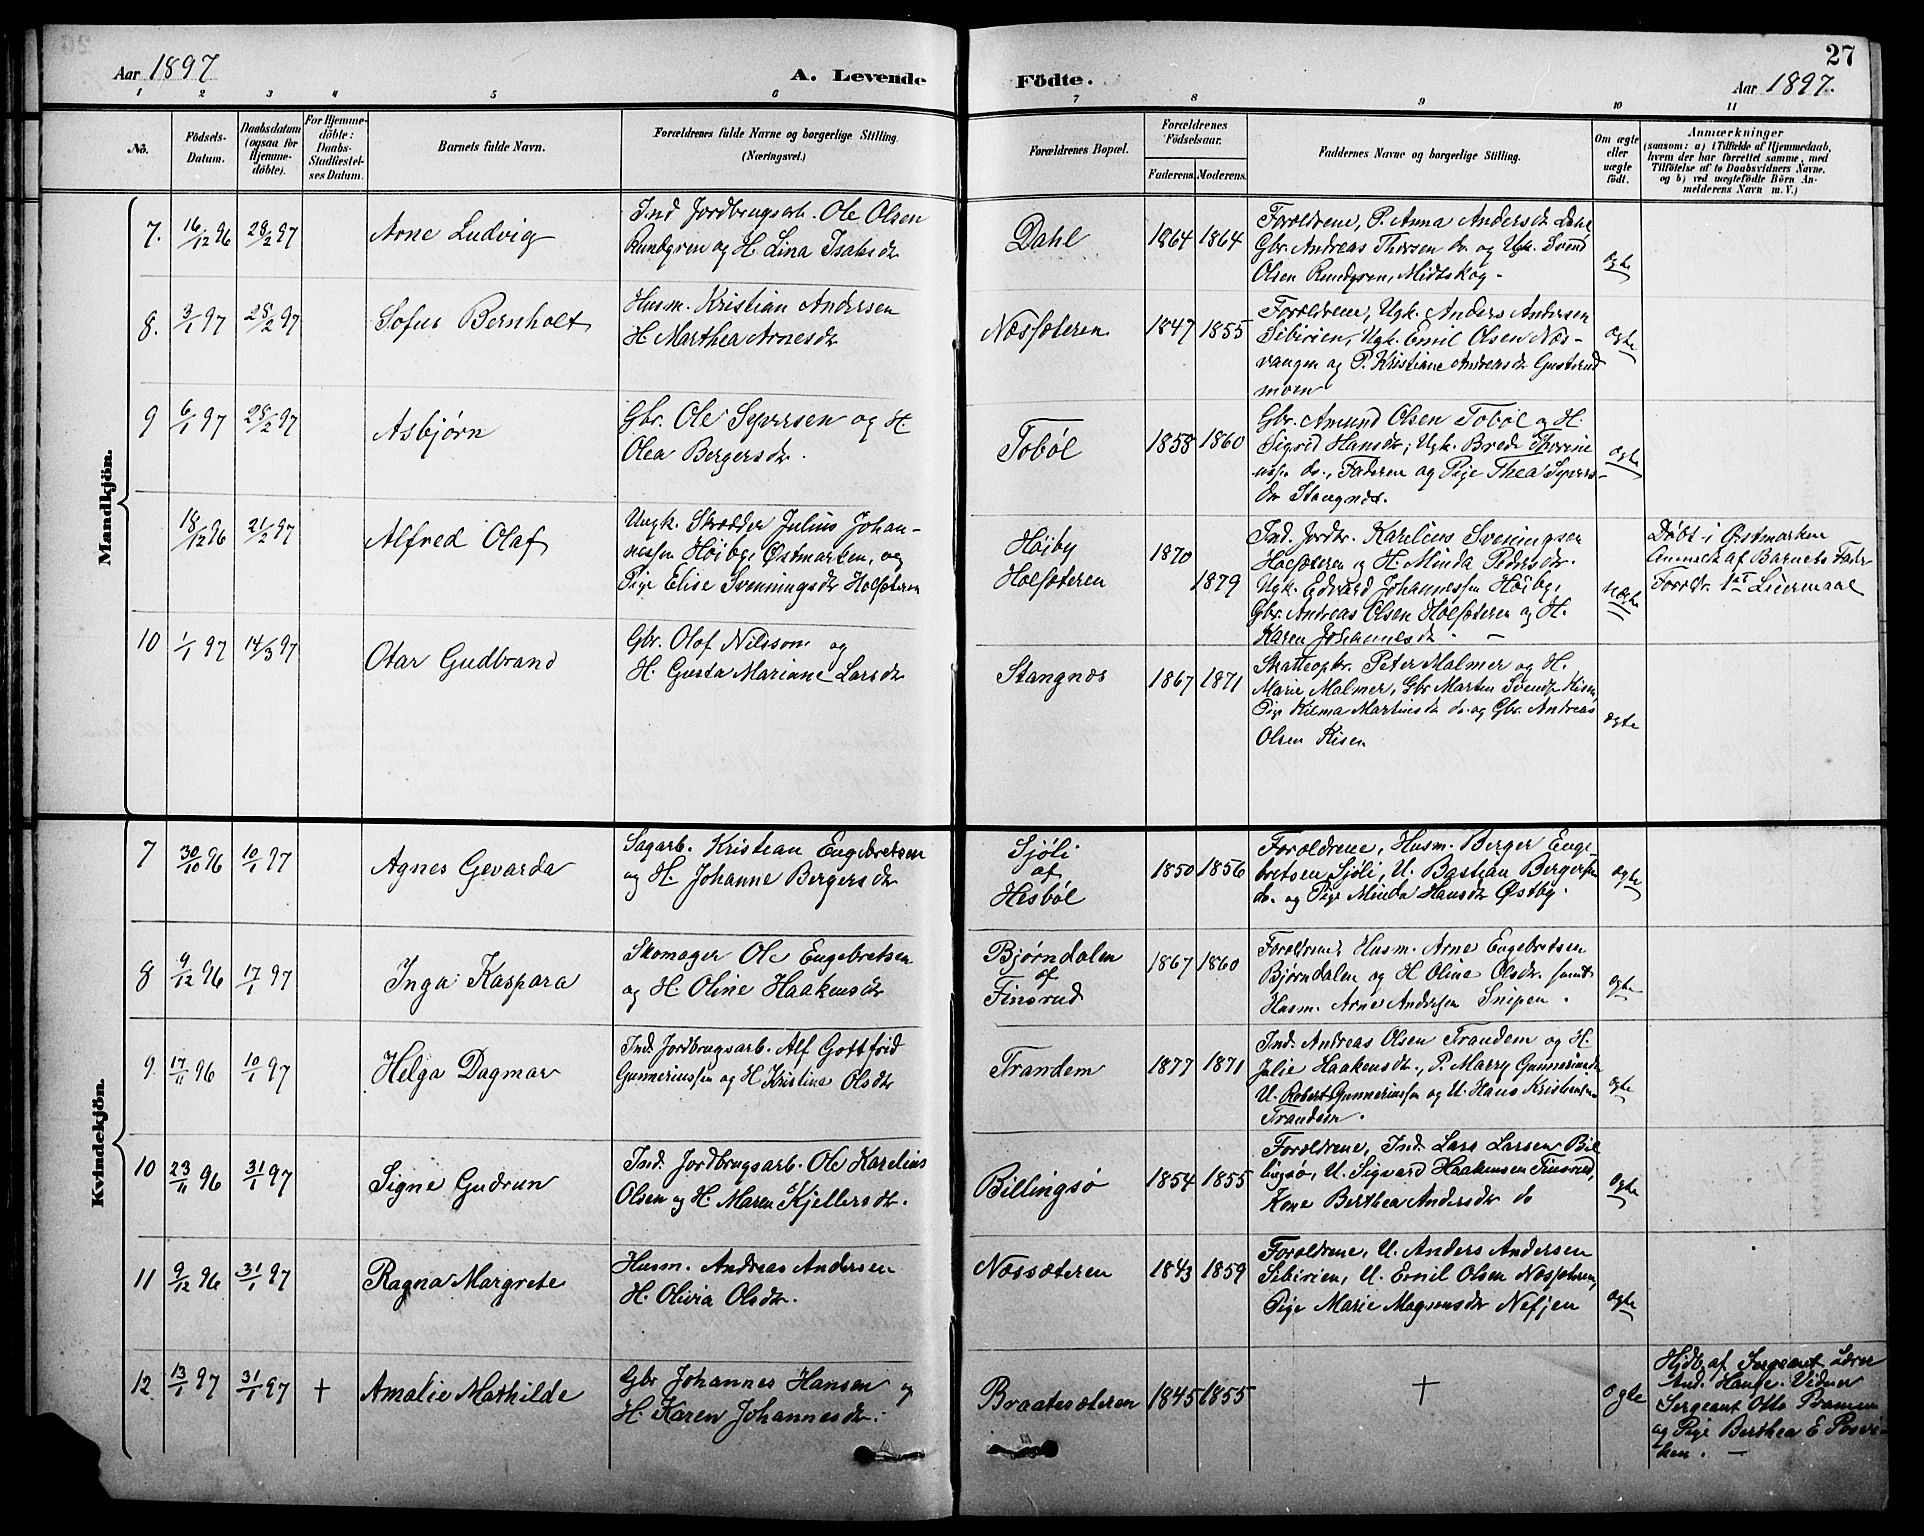 27
Aar 1897
A. Levende Födte.
Aar 1897.
1 2 3 4 5 6 7 8 9 10 11
No.
Födsels-
Datum.
Daabsdatum
(ogsaa for
Hjemme-
döbte).
For Hjemme-
döbte:
Daabs-
Stadfæstel-
ses Datum.
Barnets fulde Navn.
Forældrenes fulde Navne og borgerlige Stilling.
(Næringsvei.)
Forældrenes Bopæl.
Forældrenes
Födselsaar.
Faderens. Moderens.
Faddernes Navne og borgerlige Stilling.
Om ægte
eller
uægte
født.
Anmærkninger
(saasom: a) i Tilfælde af Hjemmedaab,
hvem der har forrettet samme, med
Tilföielse af to Daabsvidners Navne,
og b) ved uægtefödte Börn An-
melderens Navn m. V.)
Mandkjön.
7. 16/12 96 28/2 97
Arne Ludvig
Ind Jordbrugsarb. Ole Olsen
Rundgren og H. Lina Isaksdr
Dahl
1864 1864
Forældrene, P. Anna Andersdr Dahl
Gbr. Andreas Thorsen do. og Ugk. Svend
Olsen Rundgren, Midtskog -
ægte
8. 3/1 97 28/2 97
Sofus Bernholt
Husm. Kristian Andersen
H. Marthea Arnesdr
Næssæteren
1847 1855
Forældrene, Ugk. Anders Andersen
Sibirien, Ugk. Emil Olsen Næs-
vangen og P. Kristiane Andreasdr Gusterud
moen
ægte
9 6/1 97 28/2 97
Asbjørn
Gbr. Ole Syversen og H.
Olea Bergersdr.
Tobøl
1858 1860
Gbr. Amund Olsen Tobøl og H.
Sigrid Hansdr; Ugk. Brede Thorine
ussen do., Faderen og Pige Thea Syvers-
dr Stangnæs.
ægte
18/12 96 21/2 97
Alfred Olaf
Ungk. Skrædder Julius Johan-
nessen Høiby, Østmarken, og
Pige Elise Svenningsdr Holsæteren
Høiby
Holsæteren
1870
1879
Ind. Jordbr. Karelius Sveningsen
Holsæteren og H. Minda Pedersdr.
Ugk. Edvard Johannessen Høiby,
Gbr. Andreas Olsen Holsæteren og H.
Karen Johannesdr. -
uægte
Døbt i Østmarken
Anmeldt af Barnets Fader
Foreldr. 1ste Leiermaal
10 1/1 97 14/3 97
Otar Gudbrand
Gbr. Olof Nilsson og
H. Gusta Mariane Larsdr
Stangnæs
1867 1871
Skatteopkr. Peter Malmer og H.
Marie Malmer, Gbr Marten Svends. Kisen,
Pige Hilma Martinsdr do. og Gbr. Andreas
Olsen Kisen
ægte
Kvindekjön.
7 30/10 96 10/1 97
Agnes Gevarda
Sagarb. Kristian Engebretsen
og H. Johanne Bergersdr
Sjøli
af
Hesbøl
1850 1856
Forældrene, Husm. Berger Enge-
bretsen Sjøli, U. Bastian Bergersen
do. og Pige Minda Hansdr Østby.
ægte
8 9/12 96 17/1 97
Inga Kaspara
Skomager Ole Engebretsen
og H. Oline Haakensdr
Bjørndalen
af
Finsrud
1867 1860
Forældrene, Husm. Arne Engebretsen
Bjørndalen og H Oline Olsdr. samt
Husm. Arne Andersen Snipen.
ægte
9. 17/11 96 10/1 97
Helga Dagmar
Ind. Jordbrugsarb. Alf Gottfrid
Gunneriussen og H Kristine Olsdr
Trandem
1877 1871
Ind. Andreas Olsen Trandem og H.
Julie Haakensdr., P. Marry Gunneriusdr
U. Robert Gunneriussen og U. Hans Kristensen
Trandem.
ægte
10 23/11 96 31/1 97
Signe Gudrun
Ind. Jordbrugsarb. Ole Karelius
Olsen og H. Maren Kjellersdr.
Billingsø
1854 1855
Forældrene, Ind. Lars Larsen Bil
lingsø, U. Sigvard Haakensen Finsrud,
Kone Berthea Andersdr do
ægte
11 9/12 96 31/1 97
Ragna Margrete
Husm. Andreas Andersen
H. Olivia Olsdr.
Næssæteren
1843 1859
Forældrene, U. Anders Andersen
Sibirien, U. Emil Olsen Næssæteren,
Pige Marie Magnusdr Nefjen
ægte
12 13/1 97 31/1 97 +
Amalie Mathilde
Gbr Johannes Hansen og
H. Karen Johannesdr.
Braatesæteren
1845 1855
+
ægte
Hjdb. af Sergeant Lærer
And. Hauge. Vidner
Sergeant Otto
og Pige Berthea E Posvi-
ken. -